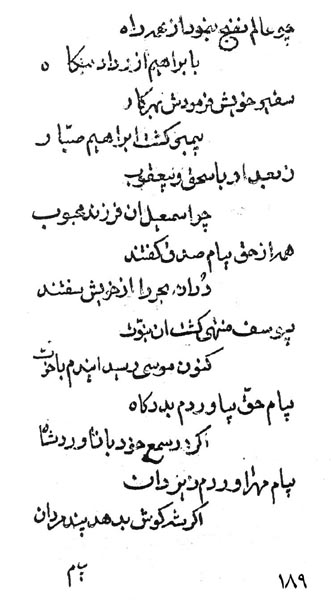 چو عالم نفع بنمود از همه راه
با براهیم از یزدان بیکاه
سفیر خویش فرمودش بهر کار
پیمبر گشت ابراهیم صبار
ز بعد او باسحق و بیعقوب
چو اسمعیل ان فرزند محبوب
همه از حق پیام صدق گفتند
در ان بحر را از خویش سفتند
بیوسف منتهی گشت ان نبوت
کنون موسی رسید ایندم باخوت
پیام حق بیاوردم بدرگاه
اگر در سمع خود باناورد شاه
پیام مهتر اوردم ز یزدان
اگر شه گوش بدهد پند مردان
پیام
۱۸۹